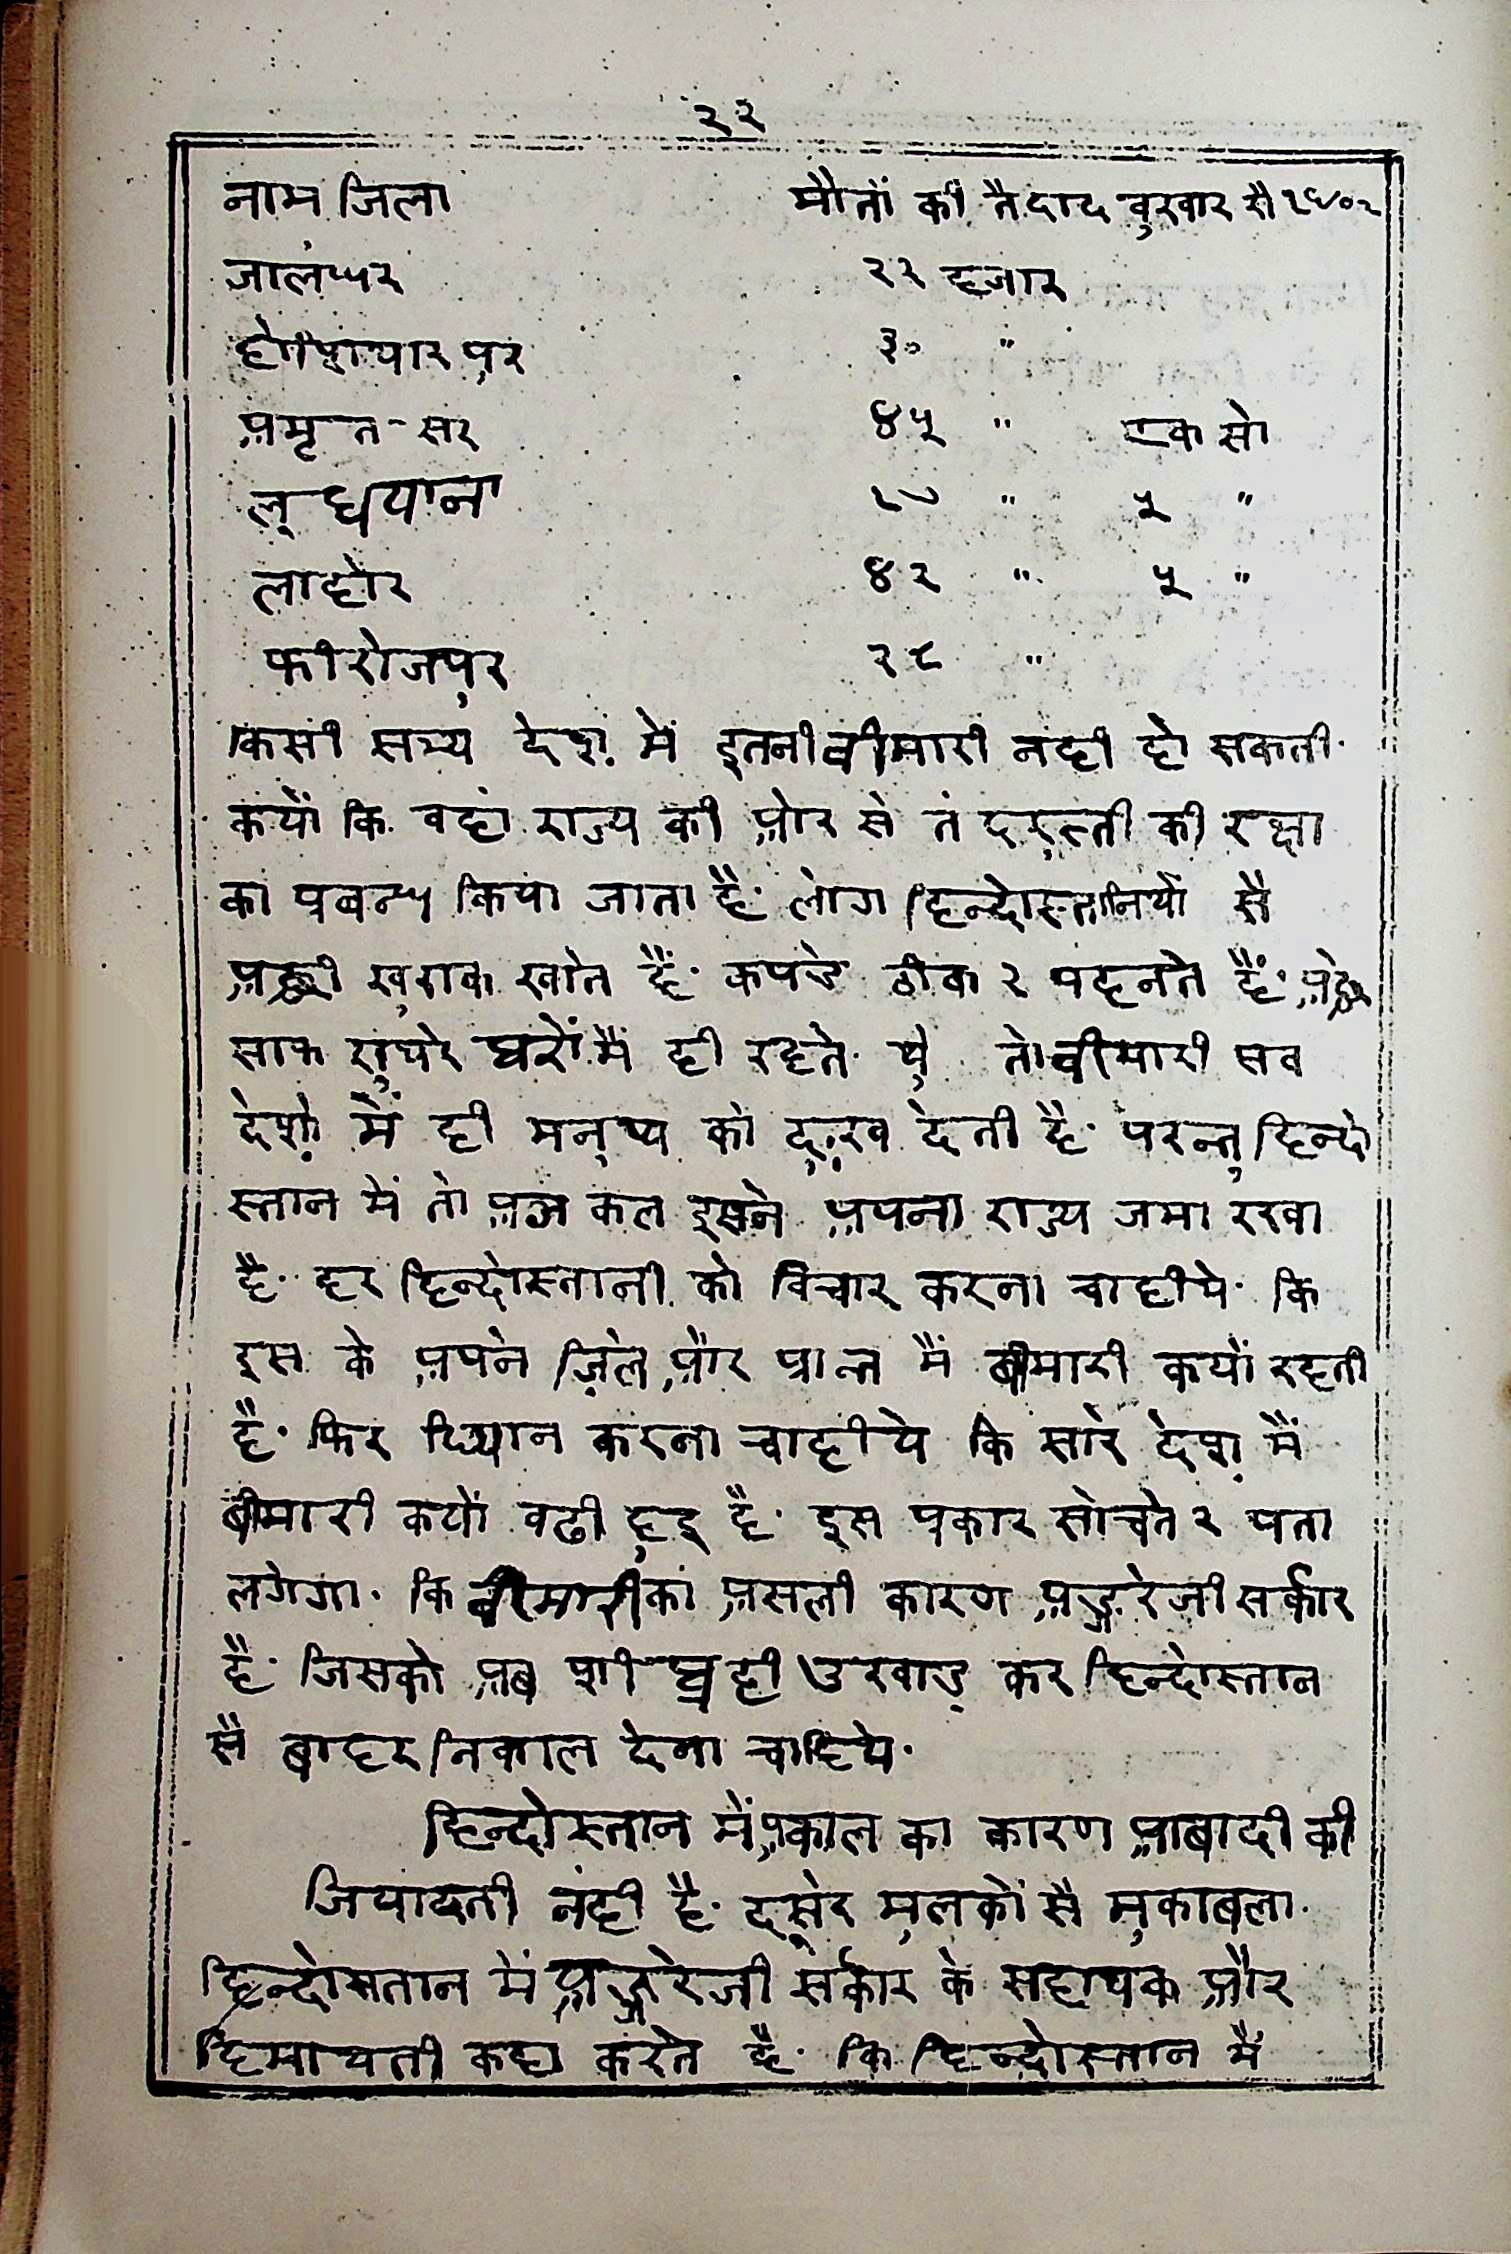 २२
नाम जिला मौतों की तैदाद बुखार सै १९०२
जालंधर २२ हजार
होशियारपुर ३० "
अमृत-सर ४५ " एक सो
लुधयाना १७ " ५ "
लाहोर ४२ " ५ "
फीरोजपुर २८ "
किसी सभ्य देश में इतनी बीमारी नही हो सकती.
कयों कि वहां राज्य की ओर से तंदरुस्ती की रक्षा
का प्रबन्ध किया जाता है. लोग हिन्दोस्तानियों सै
अच्छी खुराक खाते हैं. कपडे ठीक २ पहनते हैं.
साफ सुथरे घरों में ही रहते. यूं तो बीमारी सब
देशों में ही मनुष्य को दुःख देती है. परन्तु हिन्दो
स्तान में तो आज कल इसने अपना राज्य जमा रखा
है. हर हिन्दोस्तानी को विचार करना चाहीये. कि
इस के अपने जिले और प्रान्त में बीमारी कयों रहती
है. फिर धियान करना चाहीये कि सारे देश में
बीमारी कयों बढी हुइ है. इस प्रकार सोचते २ पता
लगेगा. कि बीमारी का असली कारण अङ्गरेजी सर्कार
है. जिसको अब शीघ्र ही उखाड़ कर हिन्दोस्तान
सै बाहर निकाल देना चाहिये.
हिन्दोस्तान में अकाल का कारण आबादी की
जियादती नंही है. दूसरे मुलकों सै मुकाबला.
हिन्दोसतान में अङ्गरेजी सर्कार के सहायक और
हिमायती कहा करते है. कि हिन्दोस्तान में